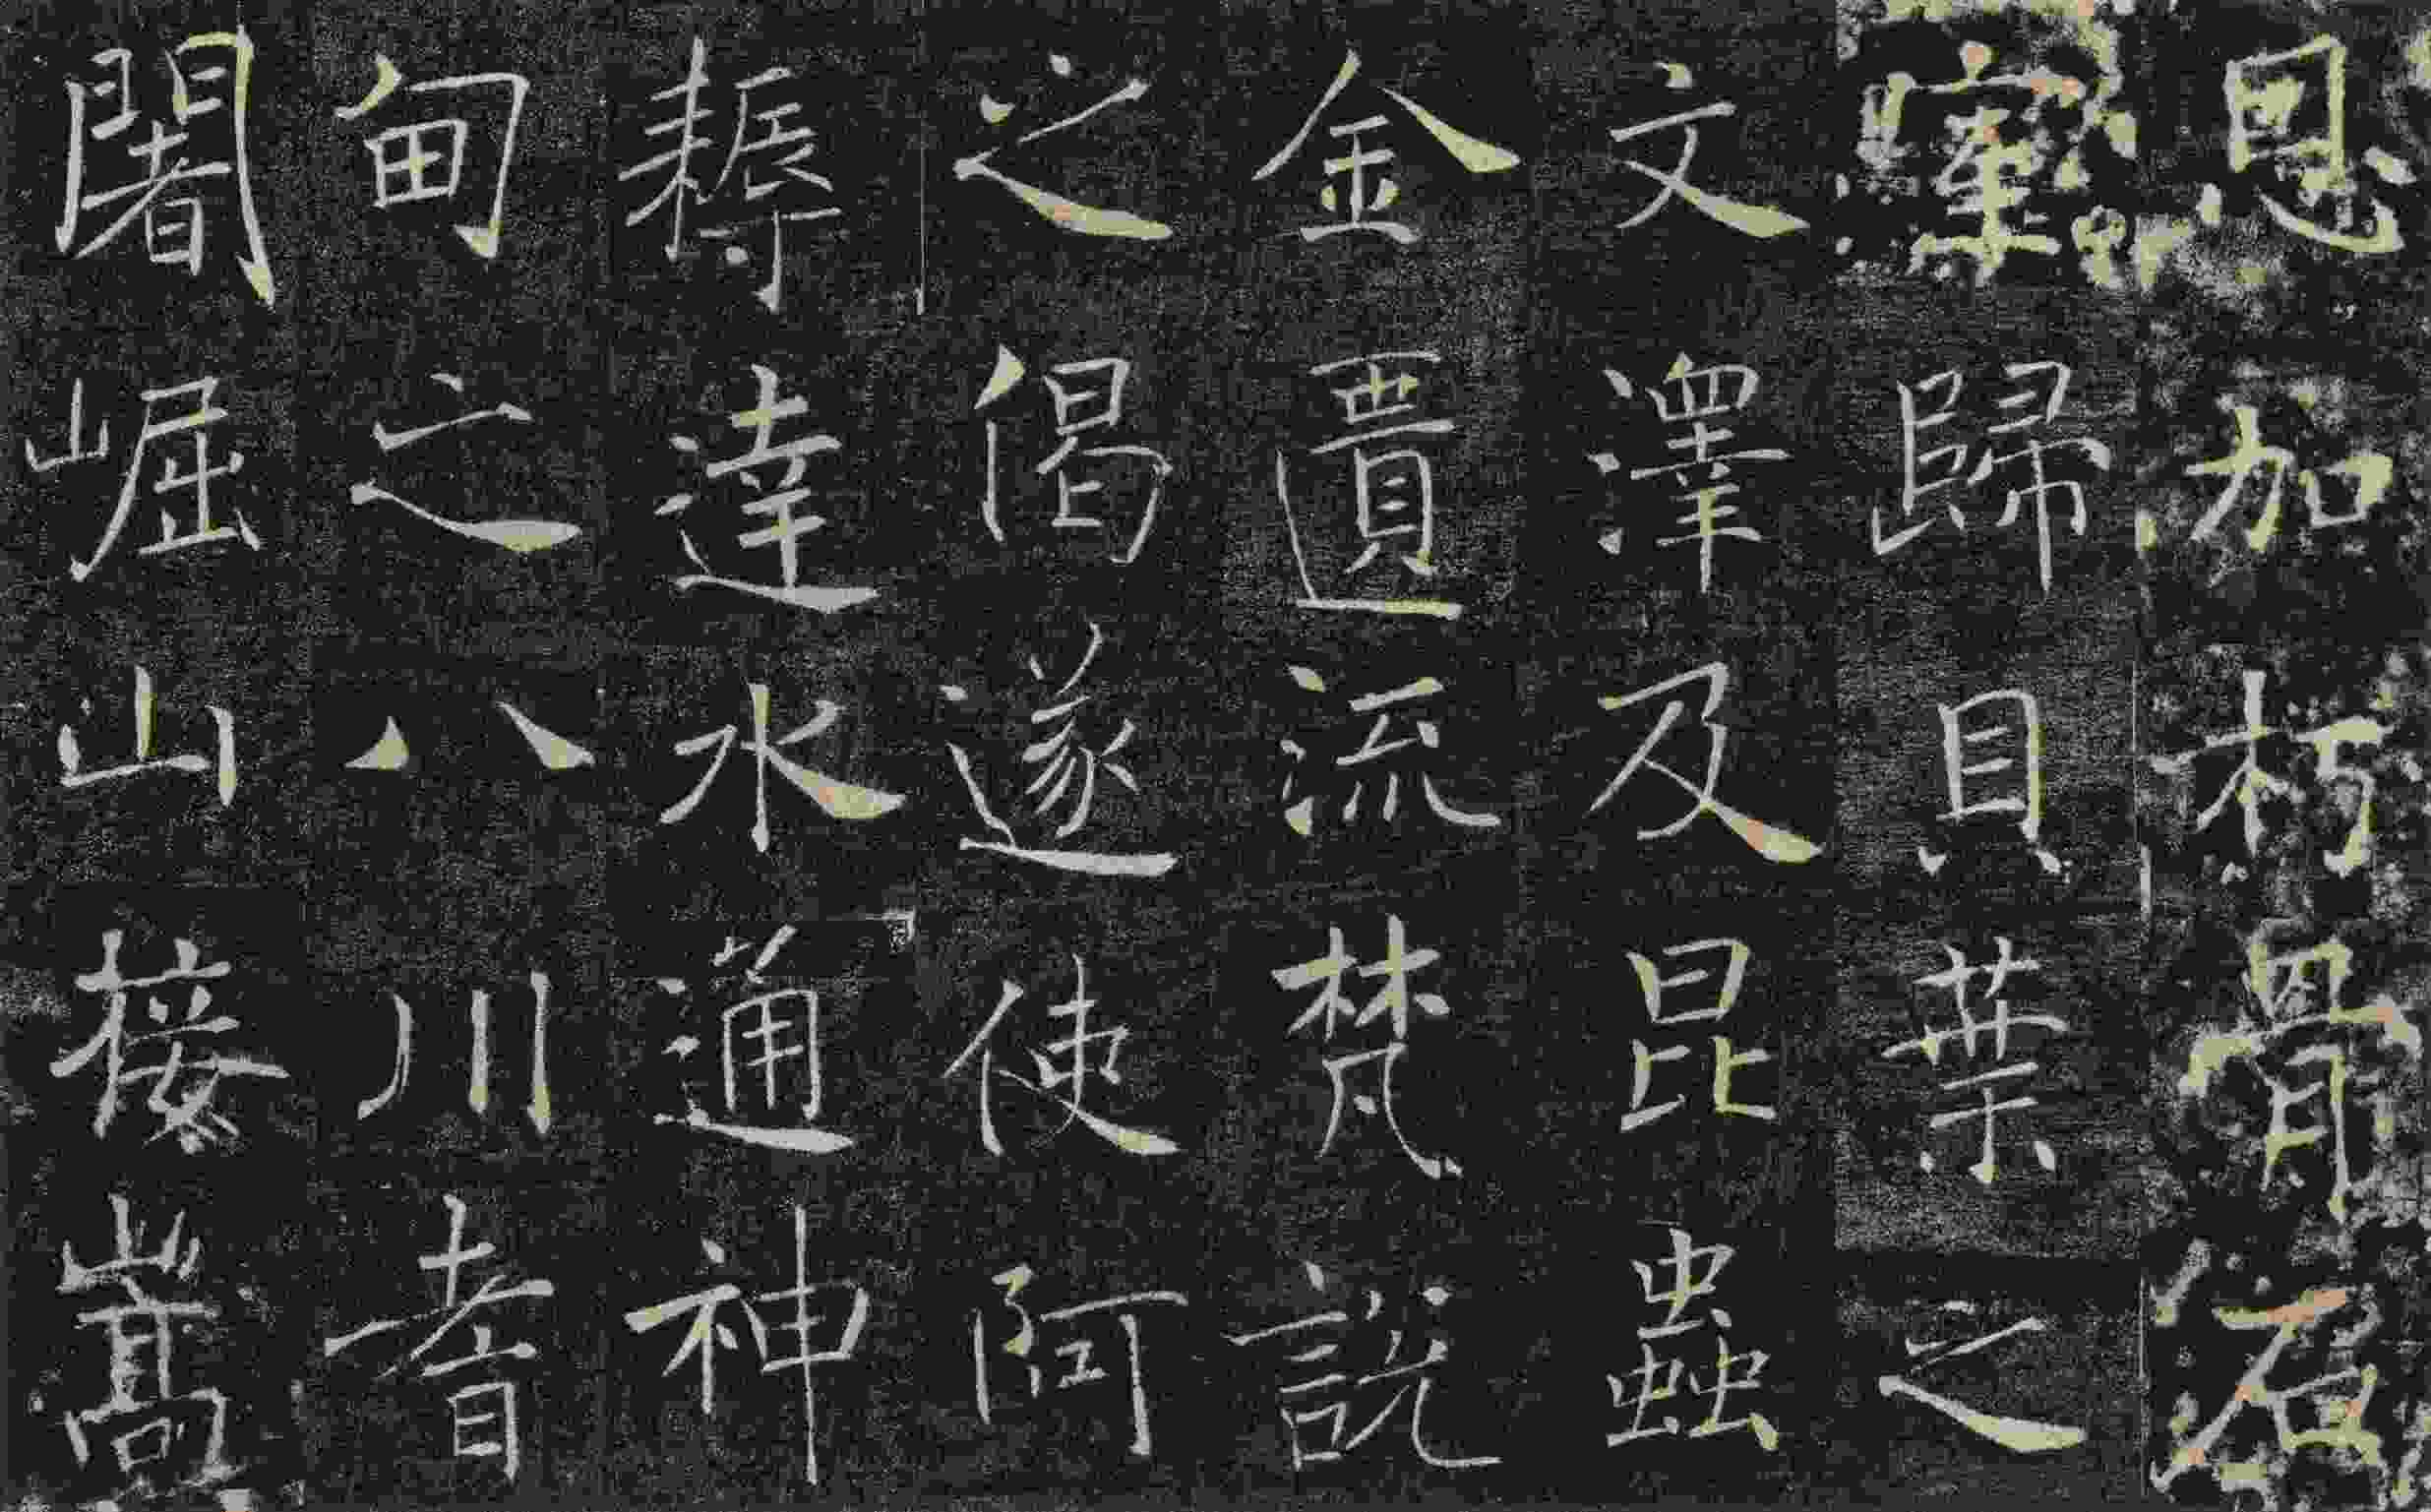 恩加朽骨石
室歸貝葉之
文澤及昆蟲
金匱流梵說
之偈遂使阿
耨達水通神
甸之八川耆
闍崛山接嵩